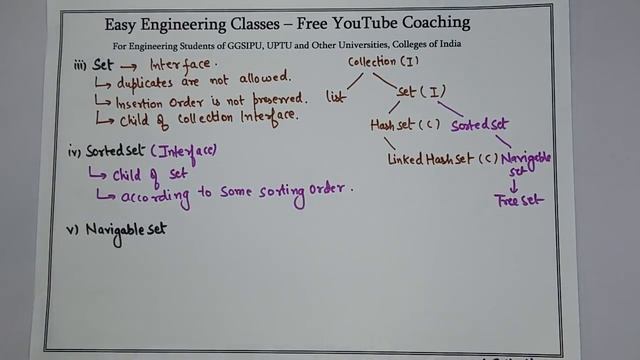 Easy Engineering Classes – Free YouTube Coaching
For Engineering Students of GGSIPU, UPTU and Other Universities, Colleges of India
iii) Set → Interface.
↳ duplicates are not allowed.
↳ Insertion Order is not preserved.
↳ Child of Collection Interface.
iv) Sorted set (Interface)
↳ Child of set
↳ according to some sorting order.
v) Navigable set
Collection (I)
list
Set (I)
Hash set (C) Sorted set
Linked Hash set (C) Navigable
set
↓
Tree set